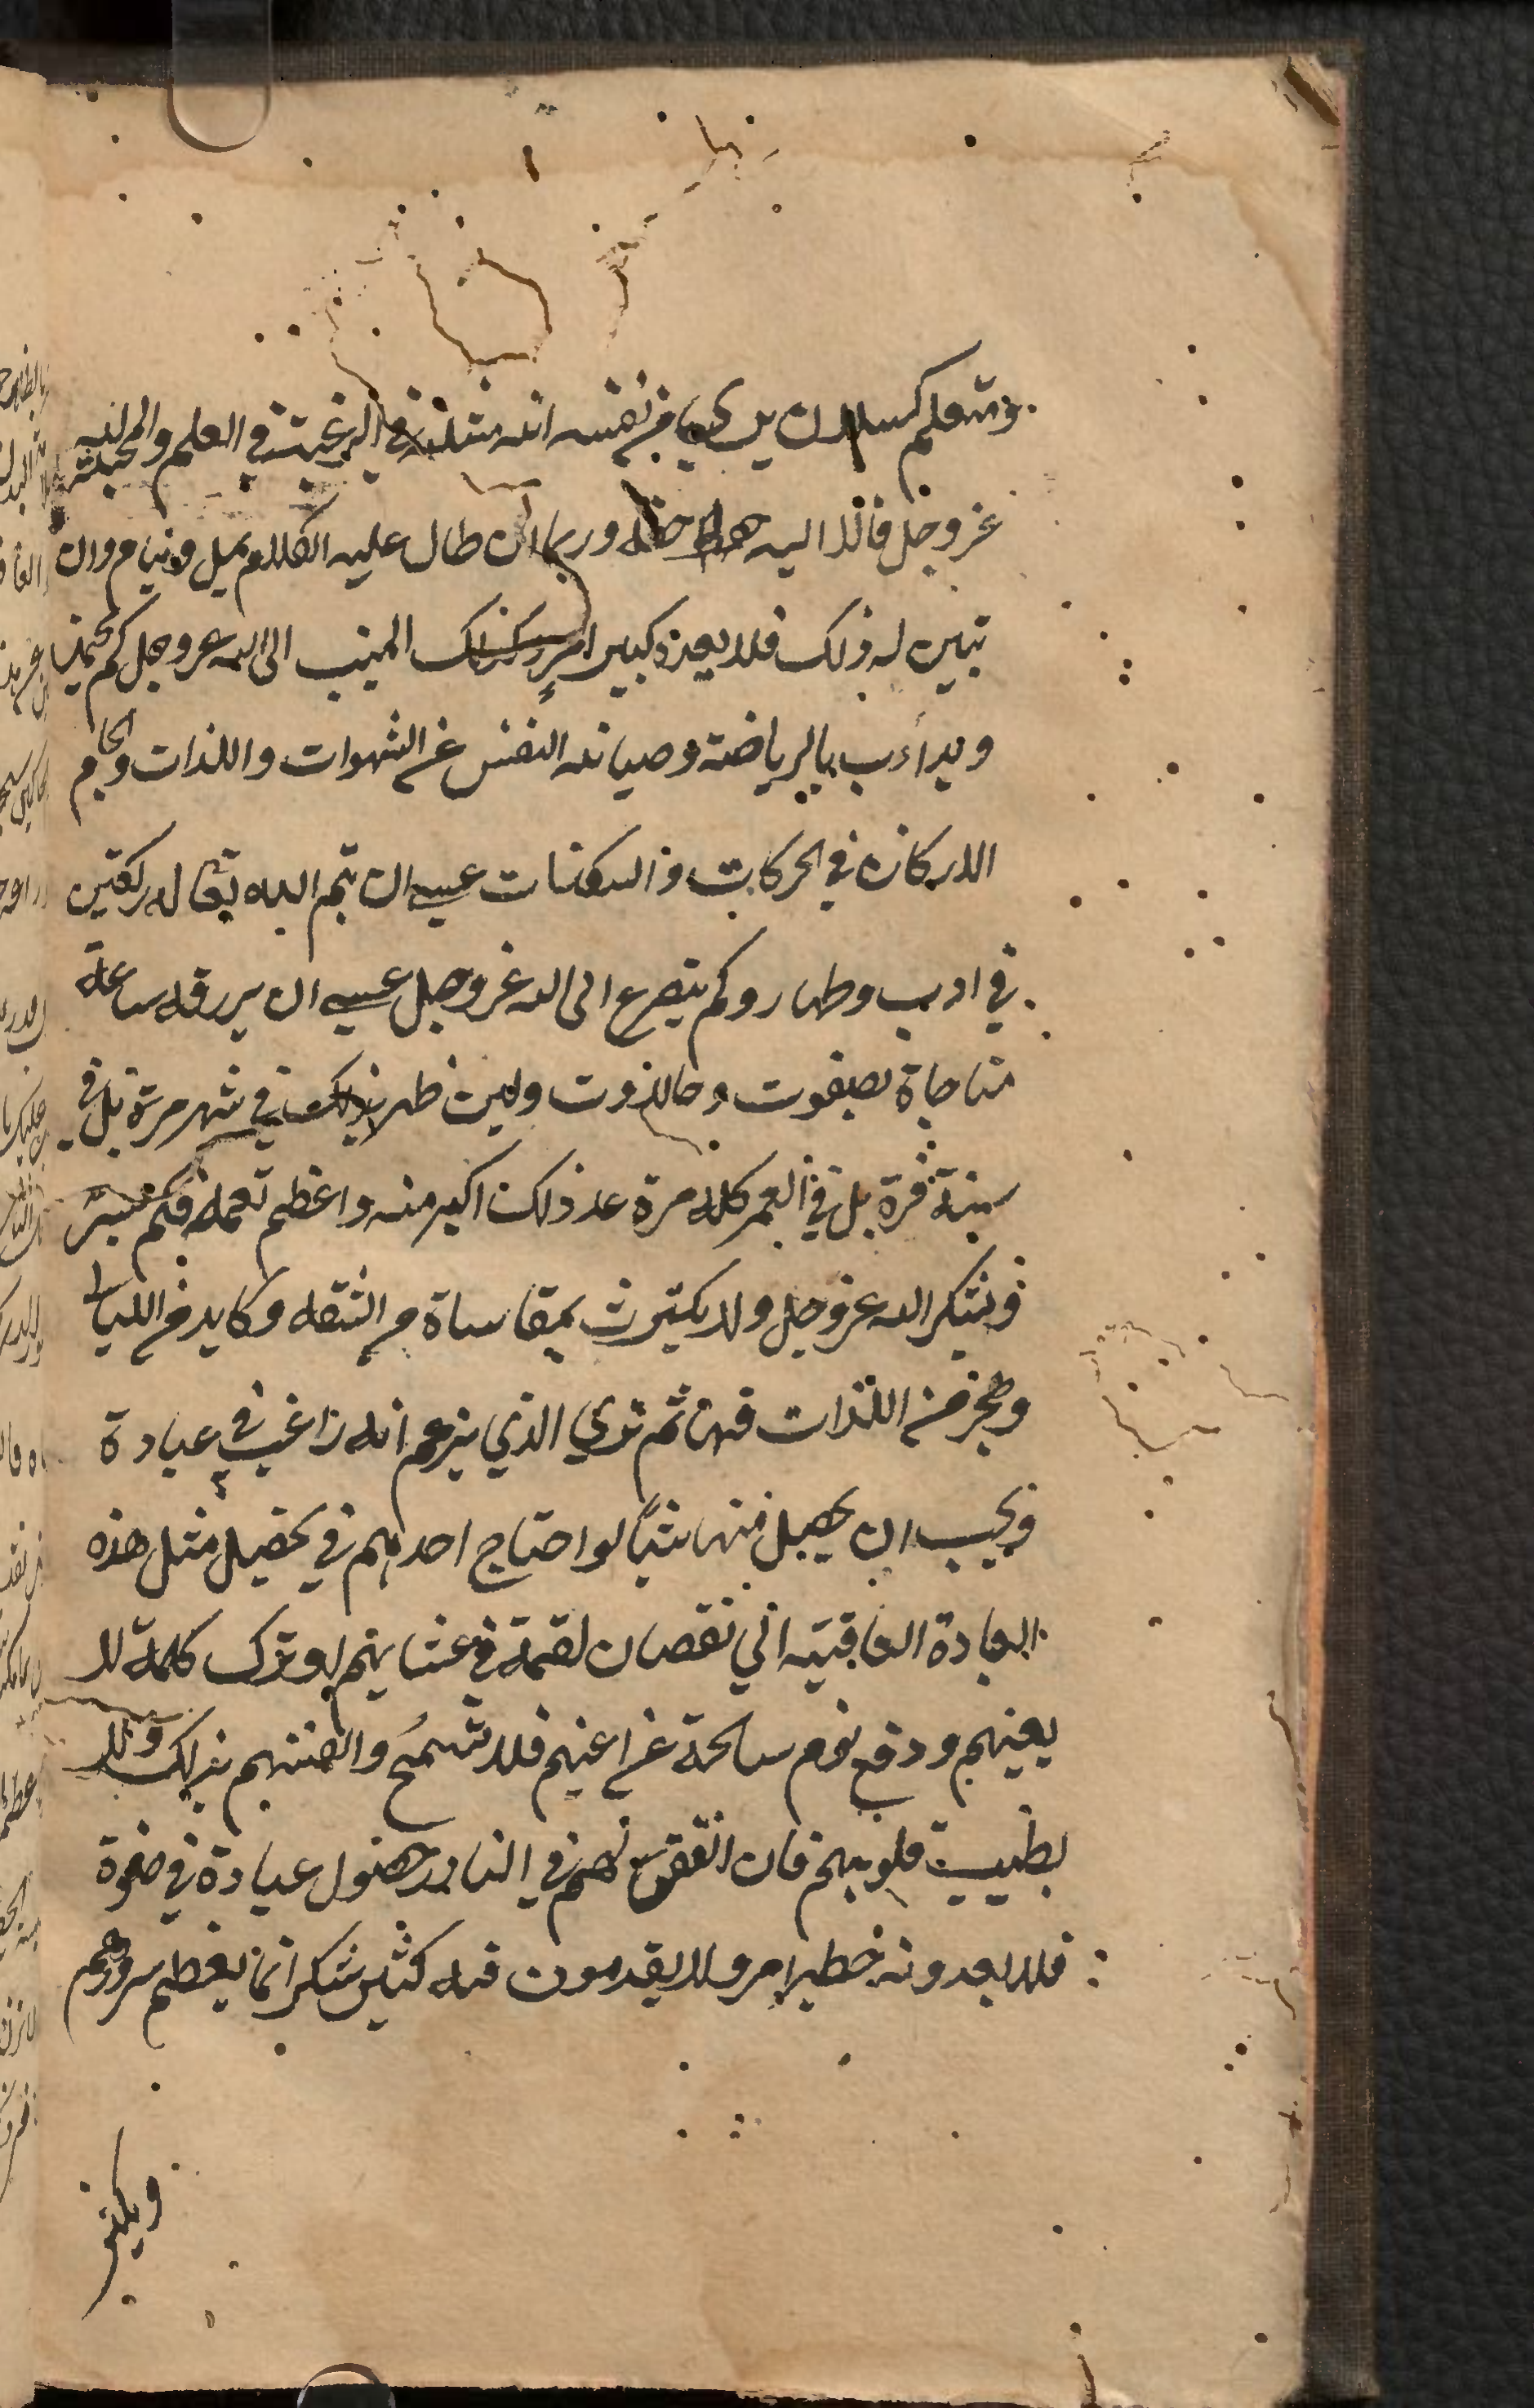 ومتعلم كسلان يرى في نفسه انه مثله في الرغبة في العلم والمحبة له
عز وجل فاذا اليه وربما ان طال عليه الكلام يميل وينام وان
تبين له ذلك فلا يعده كبير امر وكذلك المنيب الى الله عز وجل كم يجتهد
ويدأب بالرياضة وصيانة النفس عن الشهوات واللذات والجام
الاركان في الحركات والسكنات عسى ان يتم الله تعالى له ركعتين
في ادب وطهار وكم يتضرع الى الله عز وجل عسى ان يرزقه ساعة
مناجاة بصفوت وحلاوت ولين ظفر بذلك في شهر مرة بل في
سنة مرة بل في العمر كله مرة عد ذلك اكبر منه واعظم نعمة فكم يسر
ويشكر الله عز وجل ولا يكترث بمقاساة من الشقه وكابد من الليالي
وهجر من اللذات فهن ثم ترى الذي يزعم انه راغب في عبادة
ويحب ان يحصل منها شيأ لو احتاج احدهم في تحصيل مثل هذه
العبادة الصافية الى نقصان لقمة في عشائهم او ترك كلمة لا
يعنيهم ودفع نوم ساعة عن اعينهم فلا تسمح وانفسهم بذلك ولا
بطيبت قلوبهم فان اتفق لهم في النادر حصول عبادة في صفوة
فلا يعدونه خطير امر ولا يقدمون فيه كثير شكر انما يعظم سرورهم